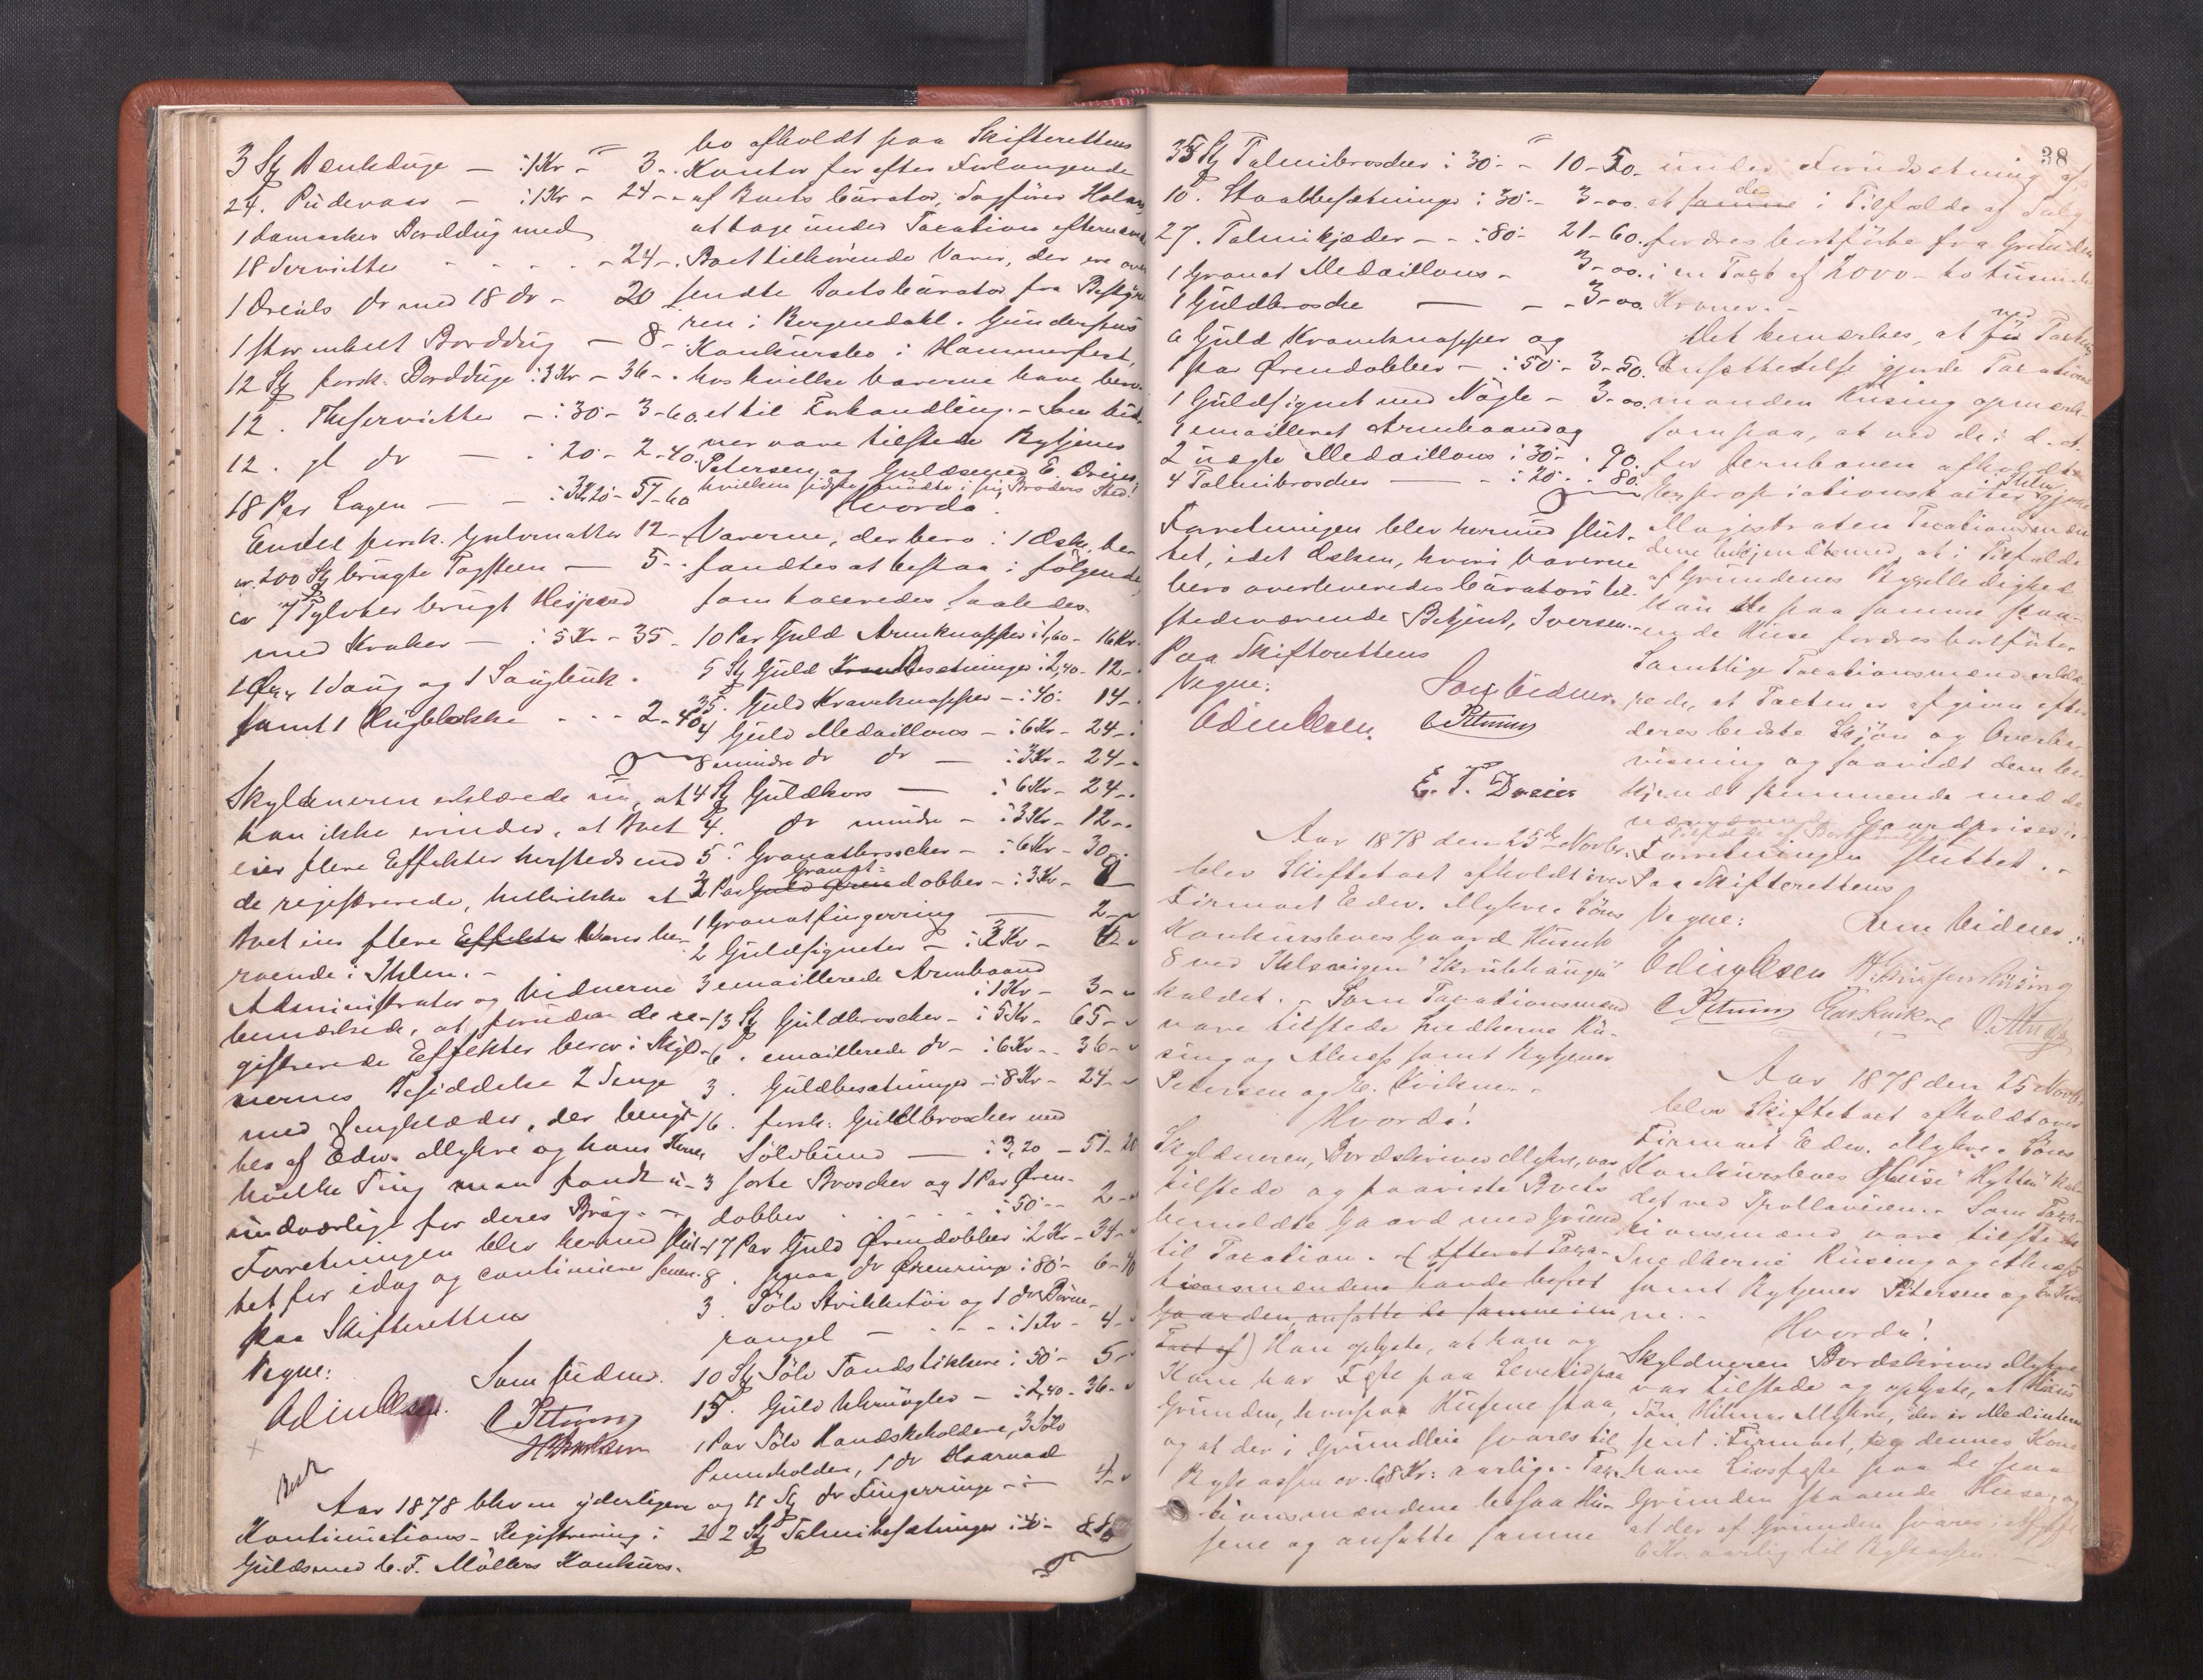 3 Stk Dækkeduge — : 1 Kr - 3 -
24 . Pudevaar — : 1 Kr - 24 -
1 damaskes Borddug med
18 Servietter - - - - 24 -
1 Dreils do med 18 do - 20
1 stor enkelt Borddug — 8 -
12 Stk forsk. Bordduge : 3 Kr - 36 -
12 . Theservietter - : 30 - 3-60
12 . gl do — : 20 - 2-40
18 Par Lagen — : 3,20 - 57-60
Endel forsk. Gulvmatter 12 -
cr. 200 Stk brugte Tagsteen — 5 -
ca 7 Tylvter brugt
med Kraker — : 5 Kr - 35 -
1 Øxe, 1 Saug og 1 Saugbuk
samt 1 Hugblokke - - - 2-40
Skyldneren erklærede nu, at
han ikke erindrer, at Boet
eier flere Effekter herstede end
de registrerede, hellerikke at
Boet eier flere Effekter Varer be-
roende i Ihlen. -
Administrator og Vidnerne
bemærkede, at foruden de re-
gistrerede Effekter beror i Skyld-
nernes Besiddelse 2 Senge
med Sengklæder, der benyt-
tes af Edw. Myhre og hans Kone,
hvilke Ting man fandt u-
undværlige for deres Brug. -
Forretningen blev hermed slut-
tet for idag og continueres senere.
paa Skifterettens
Vegne:
Som Vidner.
C Petersen
Aar 1878 blev en yderligere
Kontinuations-Registrering i
Guldsmed C. F. Møllers Konkurs-
bo afholdt paa Skifterettens
Kontor for efter Forlangende
af Boets Curator, Sagfører
at tage under Taxation efternævnte
Boet tilhørende Varer, der ere over
sendte Boets Curator fra Besty
ren i Bergendahl & Gundersens
Konkursbo i Hammerfest,
hos hvilke Varerne have bero-
et til Forhandling. - Som Vid-
ner vare tilstede Bytjener
Petersen og Guldsmed E. Dreier,
hvilken sidste mødte i sin Broders Sted!
Hvorda.
Varerne, der bero i 1 Æske, be-
fandtes at bestaa i følgende,
som taxeredes saaledes
10 Par Guld Armknapper : 1,60 - 16 Kr.
5 Stk Guld Besætninger : 2,40 - 12 -
35 . Guld Kraveknapper - : 40 : 14 -
4 Guld Medaillons - : 6 Kr - 24 -
8 mindre do do — : 3 Kr - 24 -
4 Stk Guldkors — : 6 Kr - 24 -
4 . do mindre - : 3 Kr - 12 -
5 . Granatbroscher - : 6 Kr - 30 -
Granat-
Par Guld Ørendobber - : 3 Kr -
1 Granatfingerring — 2 -
2 Guldsigneter - : 3 Kr - 6 -
3 emaillerede Armbaand
: 1 Kr - 3 -
13 Stk Guldbroscher - : 5 Kr - 65 -
6 . emaillerede do - : 6 Kr - 36 -
3 . Guldbesætninger - : 8 Kr - 24 -
16 . forsk: Guldbroscher med
Sølvbund — : 3,20 - 51-20
3 sorte Broscher og 1 Par Øren-
dobber . . . . : 50 - 2 -
17 Par Guld Ørendobber : 2 Kr - 34 -
8 . smaa do Ørenringe : 80 - 6-40
3 . Sølv Strikketøi og 1 do Børne-
rangel — - - : 1 Kr - 4 -
10 Stk Sølv Tandstikkere : 50 - 5 -
15 . Guld Uhrnøgler - : 2,40 - 36 -
1 Par Sølv Handskeholdere, 3 Sølv
Penneholder, 1 do Haarnaal
og 11 Stk do Fingerringe - : - 4 -
22 Stk Talmibesætninger : 40 -
38
35 Stk Talmibroscher : 30 - 10-50
10 . Staalbesætninger : 30 - 3-00
27 . Talmikjæder - - : 80 - 21-60
1 Granat Medaillons - 3-00
1 Guldbrosche — - - 3-00
6 Guld Kraveknapper og
1 par Ørendobber - : 50 - 3-50
1 Guldsignet med Nøgle - 3-00
1 emailleret Armbaand og
2 uægte Medaillons : 30 - . 90
4 Talmibroscher — - : 20 . . 80
Forretningen blev hermed slut-
tet, idet Æsken, hvori Varerne
bero overleveredes Curators til-
stedeværende Betjent, Iversen. -
Paa Skifterettens
Vegne:
Som Vidner.
C Petersen
E. T. Dreier
Aar 1878 den 25de Novbr.
blev Skifteret afholdt over
Firmaet Edw. Myhre & Søns
Konkursboes Gaard Husnr
8 ved Ihlsvigen "Skrubhaugen"
kaldet. - Som Taxationsmænd
vare tilstede Snedkerne Rü-
sing og Alness samt Bytjener
Petersen og E. Kirkne. -
Hvorda!
Skyldneren, Bordskriver Myhre, var
tilstede og paaviste Boets
bemeldte Gaard med Grund
til Taxation. - (Efterat Taxa-
tionsmændene havde beseet
Gaarden, ansatte de samme i en
Taxt af) Han oplyste, at han og
Kone har Fæste paa Levetid paa
Grunden, hvorpaa Husene staa,
og at der i Grundleie svares til
Bykassen cr. 68 Kr: aarlig. - Taxa-
tionsmændene besaa Hu-
sene og ansatte samme
under Forudsætning af
de
at samme i Tilfælde af Salg
fordres bortførte fra Grunden
i en Taxt af 2000 - to tusinde
Kroner. -
Det bemærkes, at før ved Taxtens
Ansættelse gjorde Taxations
manden Rüsing opmærk-
som paa, at ved de i d. A.
for Jernbanen afholdte
Expropriationstaxter i Ihlen gjorde
Magistraten Taxationsmæn
dene bekjendt med, at i Tilfælde
af Grundenes Byggelledighed
kan de paa samme staa-
ende Huse fordres bortførte.
Samtlige Taxationsmænd erklæ-
rede, at Taxten er afgiven efter
deres bedste Skjøn og Overbe-
visning og saavidt dem be-
kjendt stemmende med de
nuværende Gaardpriser i
Tilfælde af Bortflyttelse
Forretningen sluttet. -
Paa Skifterettens
Vegne:
Som Vidner.
C Petersen
Aar 1878 den 25 Novbr
blev Skifteret afholdt over
Firmaet Edw. Myhre & Søns
Konkursboes Huse "Hytten" kal-
det ved Trollaveien. - Som Taxa-
tionsmænd vare tilstede
Snedkerne Rüsing og Alness
samt Bytjener Petersen og E. Kirk-
ne. -
Hvorda!
Skyldneren Bordskriver Myhre
var tilstede og oplyste, at Hans
Søn, Hilmar Myhre, der er Medinteres-
sent i Firmaet, og dennes Kone
have Livsfæste paa de paa
Grunden staaende Huse, og
at der af Grunden svares i Afgift
6 Kr. aarlig til Bykassen. -